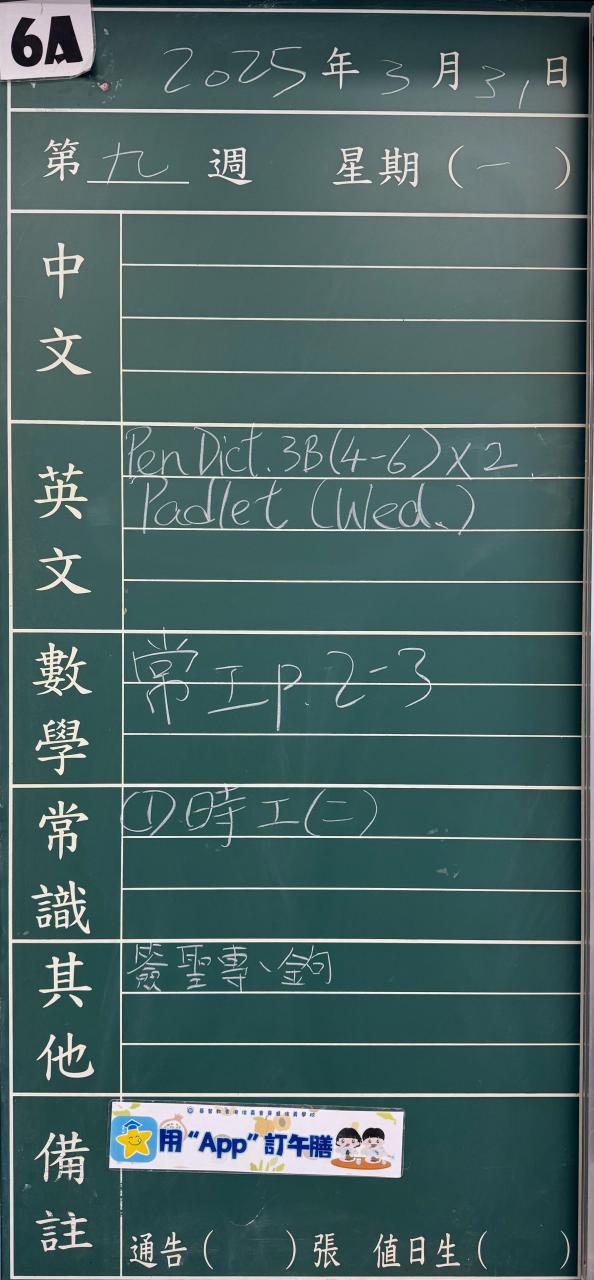 6A
2025年3月31日
第九週 星期(一)
中文
英文
Pen Dict. 3B(4-6)×2
Padlet (Wed.)
數學
常工p.2-3
常識
①時工(二)
其他
簽聖專、鉤
備註
基督教香港信義會
用“App”訂午膳
通告( )張 值日生( )